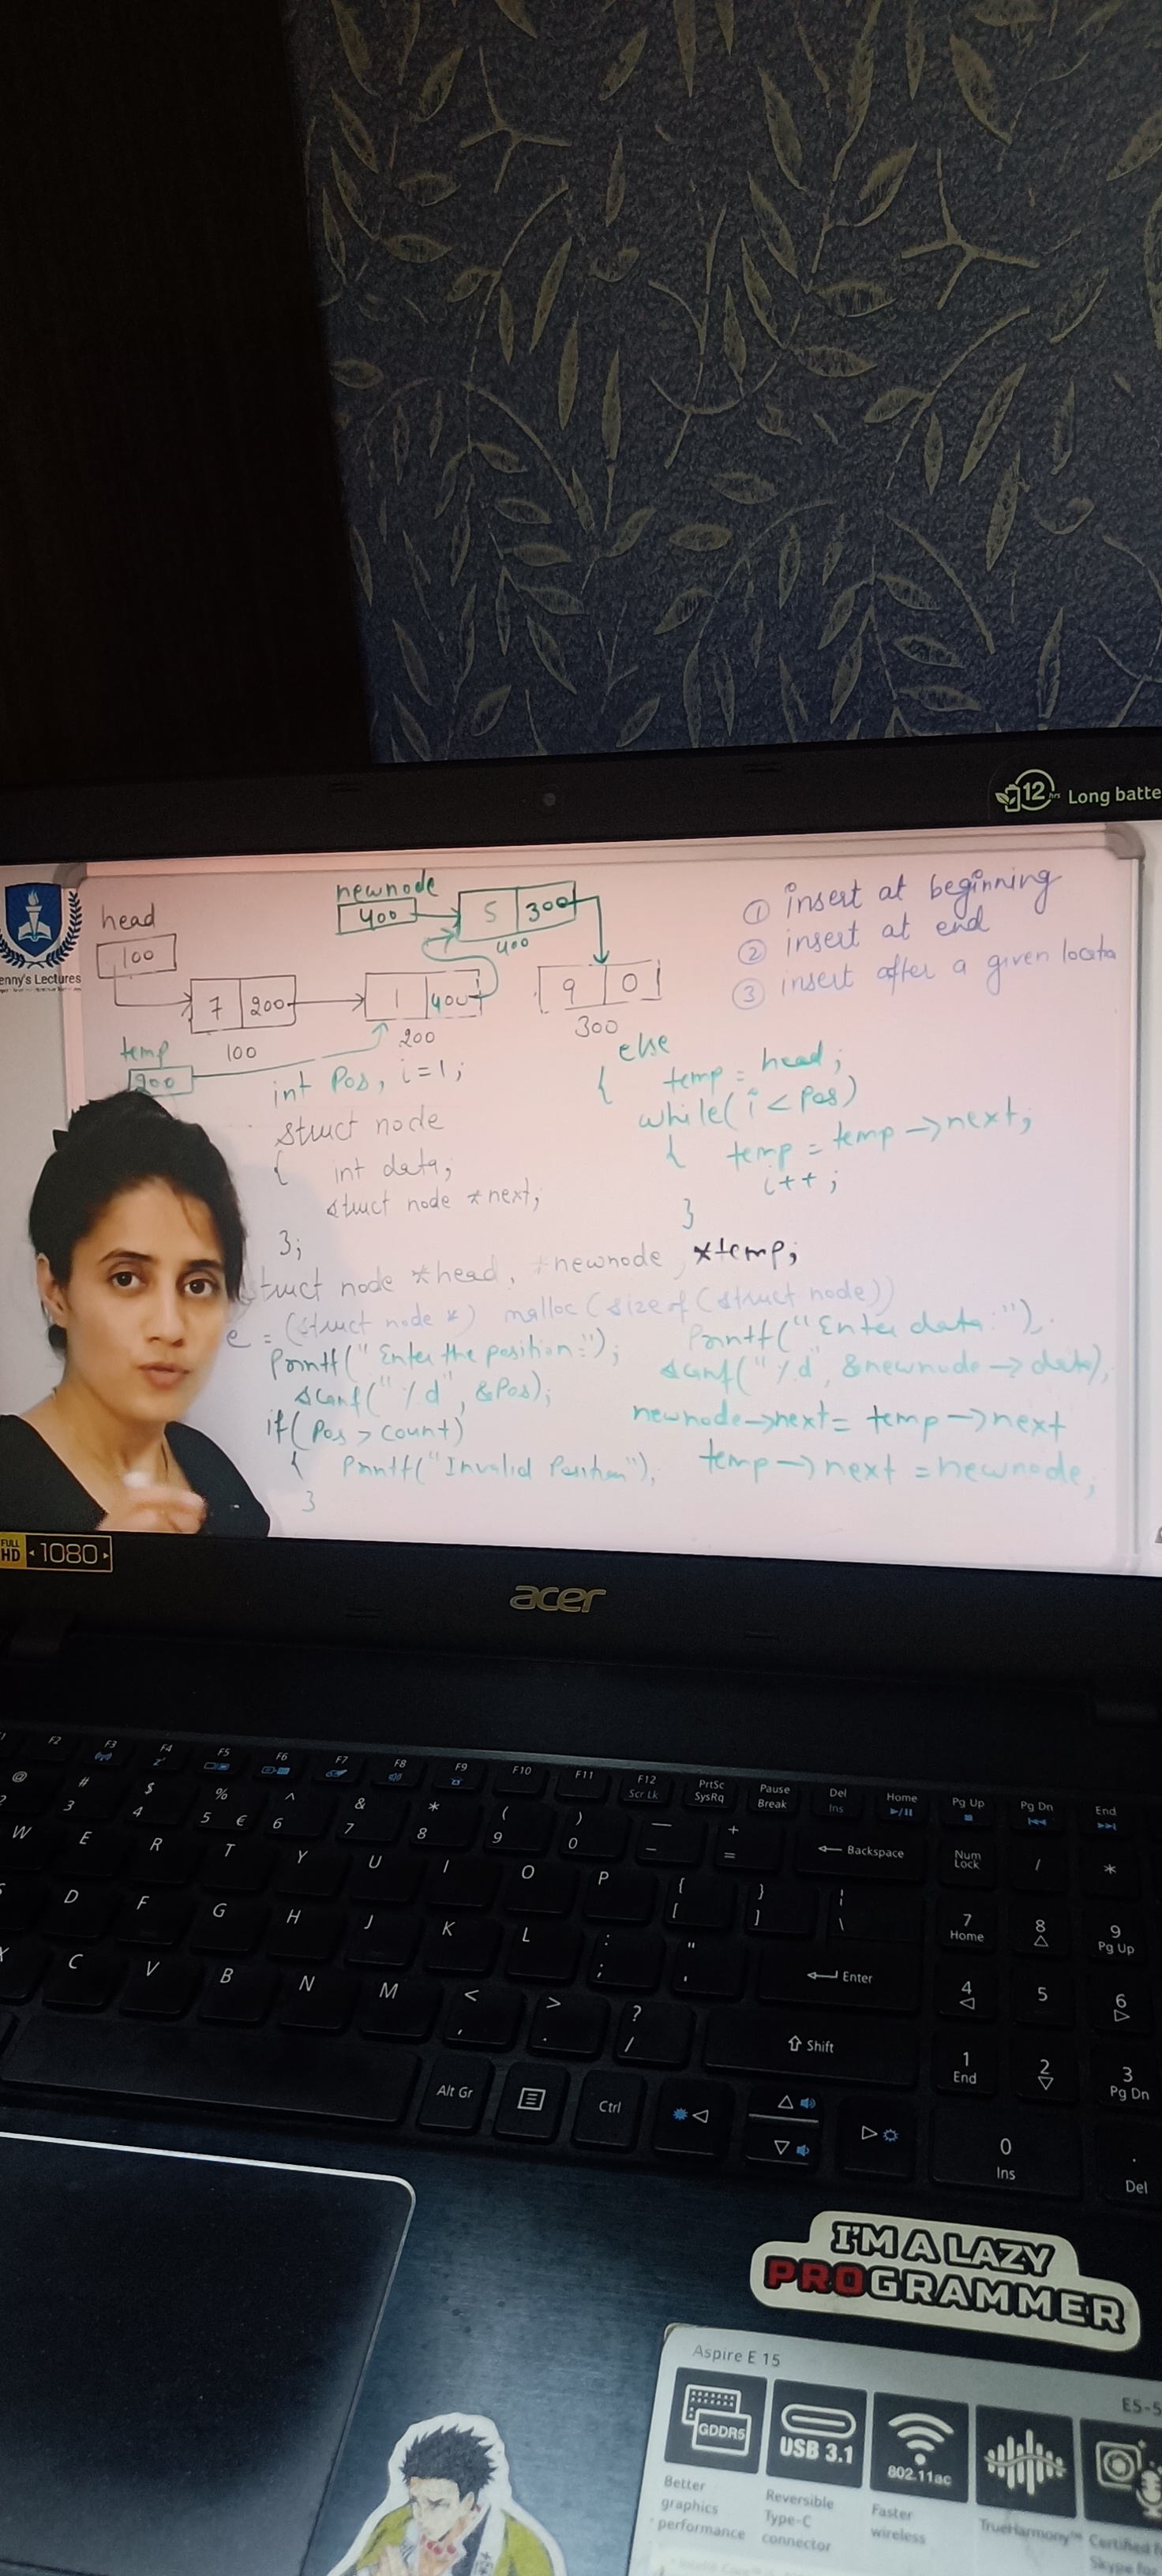 12 hrs Long batte
enny's Lectures
head
100
newnode
400
5 300
400
7 200
100
1 400
200
9 0
300
temp
200
① insert at beginning
② insert at end
③ insert after a given locatio
int Pos, i=1;
struct node
{ int data;
struct node *next;
};
truct node *head, *newnode, *temp;
e = (struct node *) malloc(sizeof(struct node))
Printf("Enter the position:");
scanf("%d", &Pos);
if(Pos > count)
{ Printf("Invalid Position");
}
else
{ temp = head;
while(i < Pos)
{ temp = temp->next;
i++;
}
Printf("Enter data:");
scanf("%d", &newnode->data);
newnode->next = temp->next
temp->next = newnode;
FULL HD 1080
acer
F2 F3 F4 F5 F6 F7 F8 F9 F10 F11 F12 Scr Lk PrtSc SysRq Pause Break Del Ins Home Pg Up Pg Dn End
@ # 3 $ 4 % 5 € ^ 6 & 7 * 8 ( 9 ) 0 — - + = Backspace Num Lock / *
W E R T Y U I O P { [ } ] ¦ \ 7 Home 8 9 Pg Up
D F G H J K L : ; " ' Enter 4 5 6
X C V B N M < , > . ? / Shift 1 End 2 3 Pg Dn
Alt Gr Ctrl 0 Ins . Del
I'M A LAZY
PROGRAMMER
Aspire E 15
E5-5
GDDR5
Better graphics performance
USB 3.1
Reversible Type-C connector
802.11ac
Faster wireless
TrueHarmony™
Certified f
Skype fo